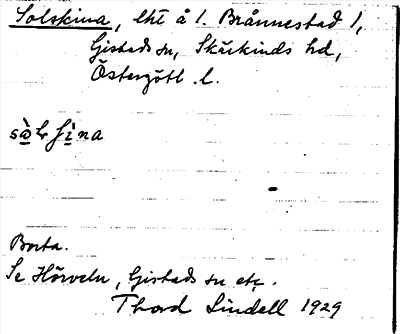 Solskina, lht å 1. Brånnestad 1,
Gistads sn, Skärkinds hd,
Östergötl. l.
Borta.
Se Hörveln, Gistads sn etc.
Thord Lindell 1929